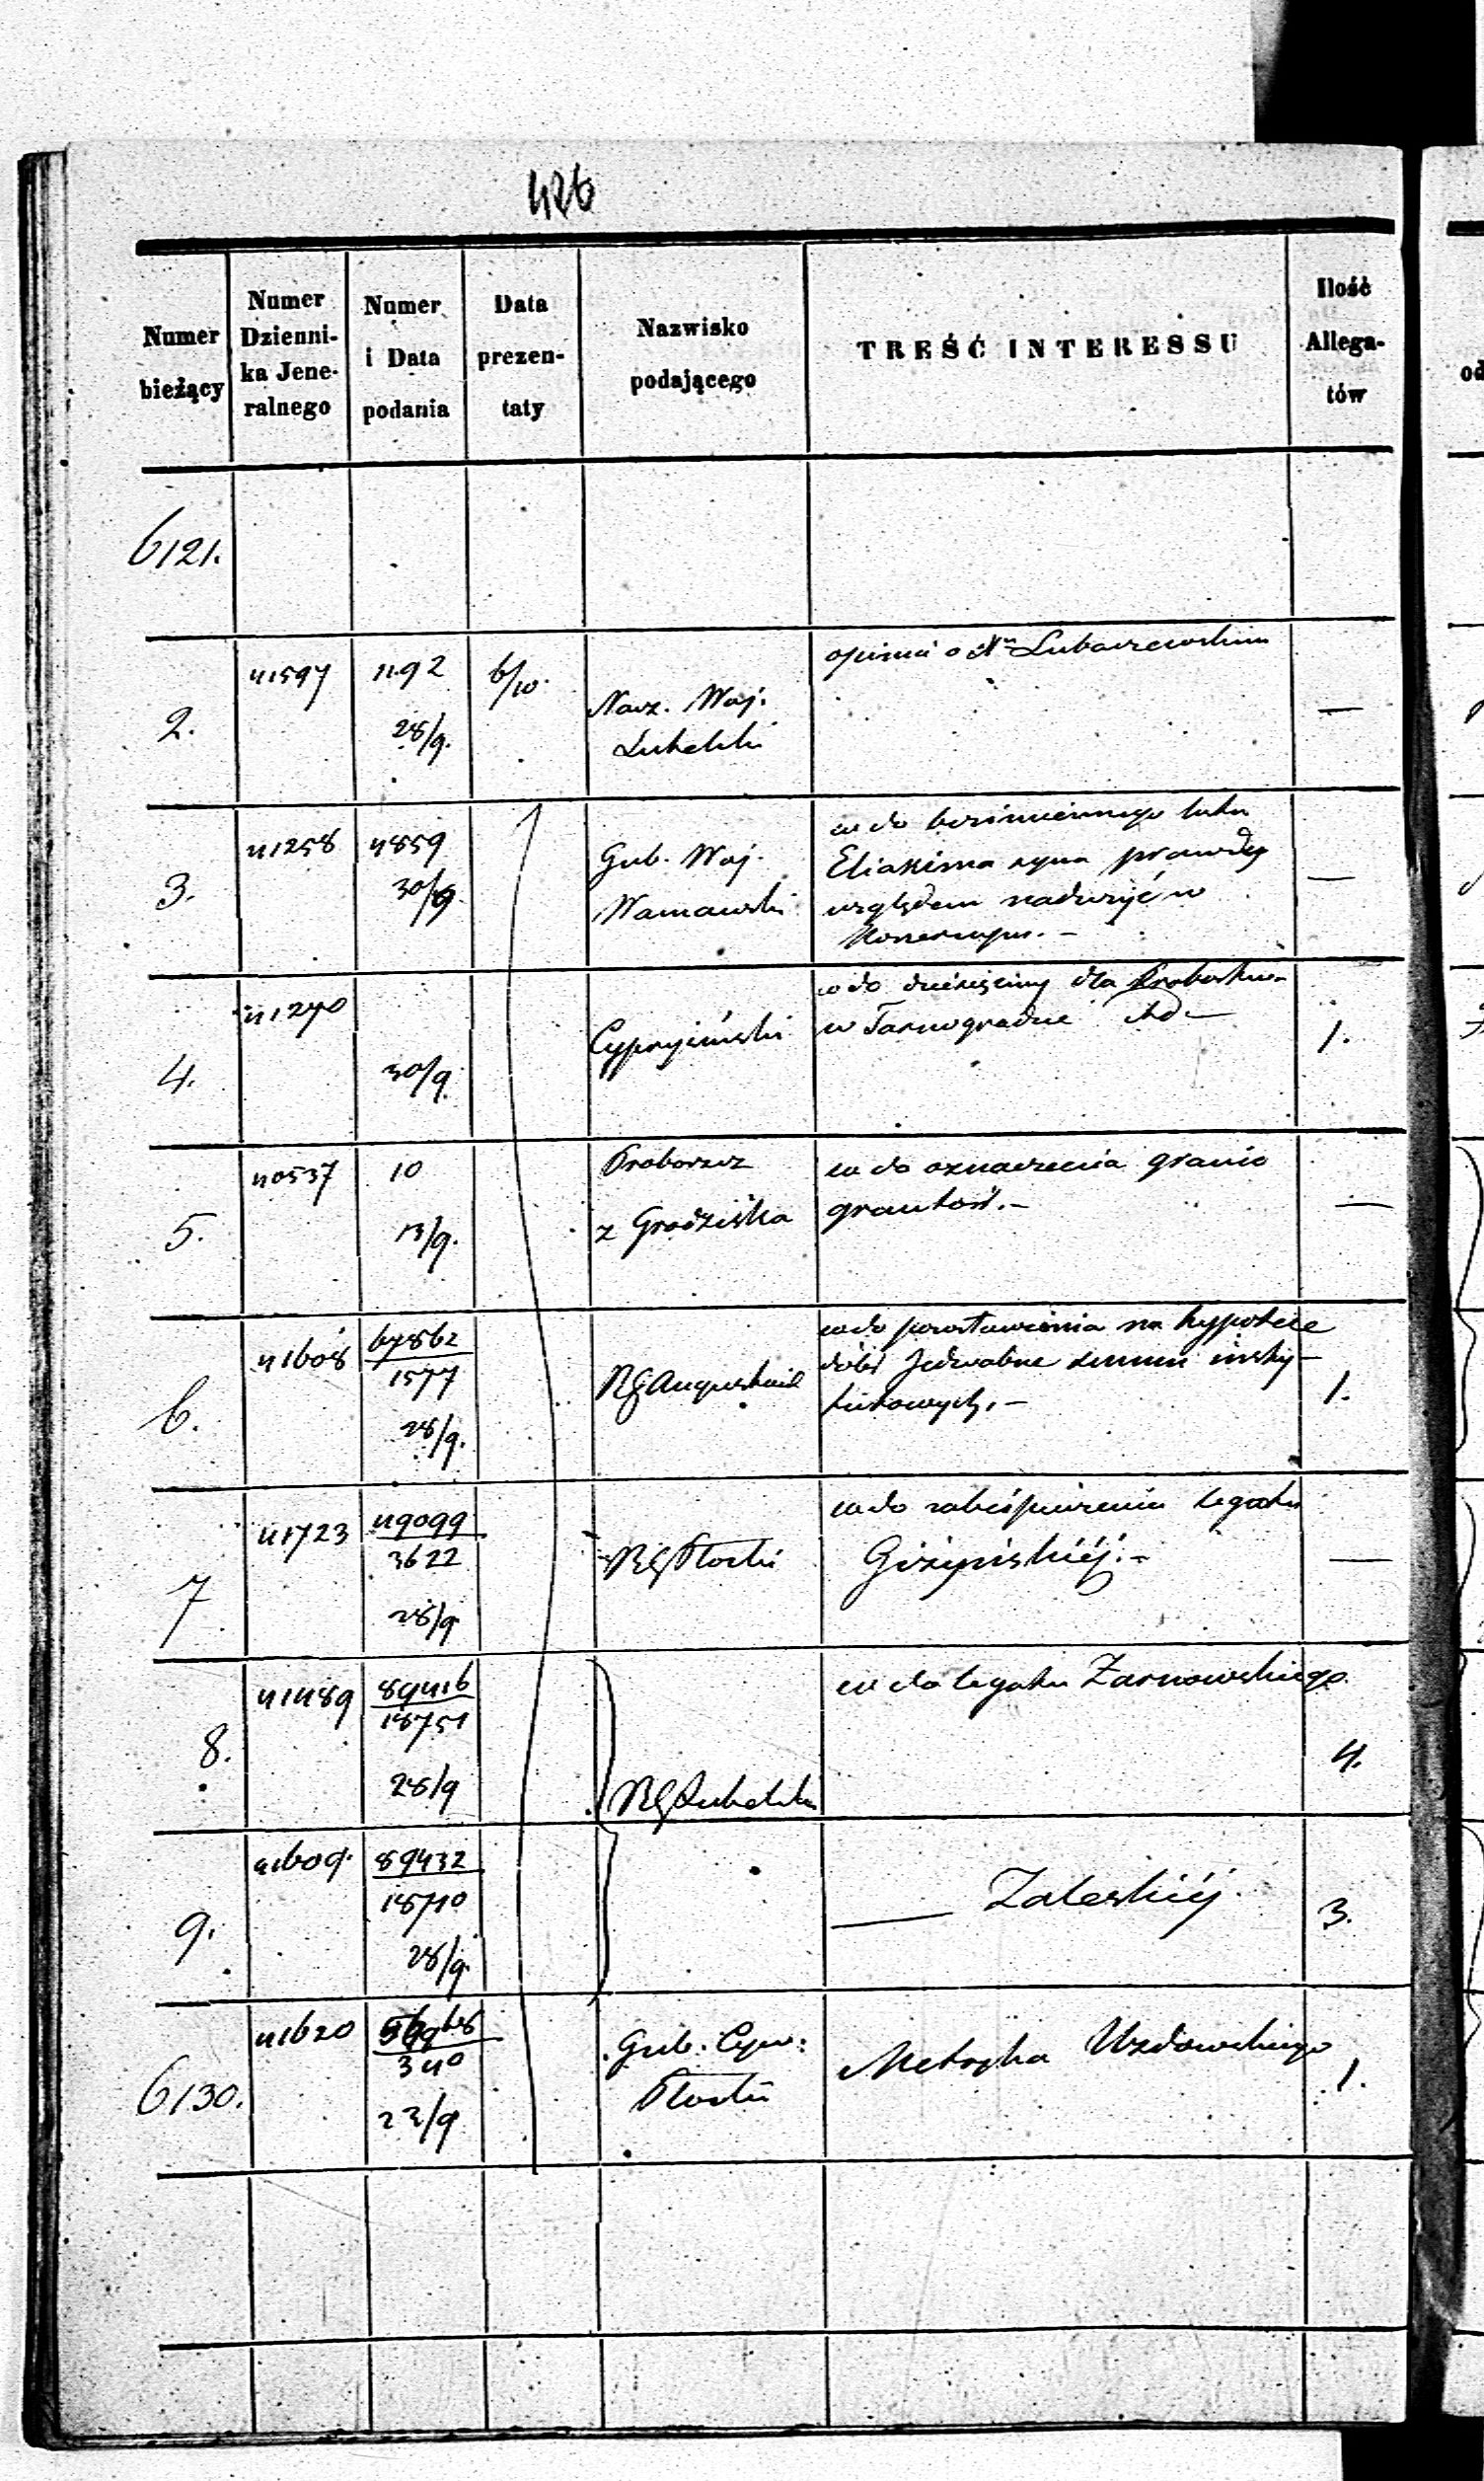 426
Numer bieżący
Numer Dzienni- ka Jene- ralnego
Numer i Data podania
Data prezen- taty
Nazwisko podającego
TREŚĆ INTERESSU
Ilość Allega- tów
6121.
2.
41597
1192
28/9.
6/10.
Nacz. Woj.
Lubelski
—
3.
41258
4859
30/9.
Gub. Woj.
Warszawski
co do bezimiennego
Eliakima syna prawdy
względem nadużyć w
—
4.
41240
30/9.
co do dziesięciny dla
w Tarnogrodzie
1.
5.
40537
10
13/9.
Proboszcz
z Grodziska
co do oznaczenia granic
gruntów.—
—
6.
41608
67862
1577
28/9.
RG Augustowski
co do na hypotece
dóbr Jedwabne summ insty-
tutowych.—
1.
7
41723
49099
3622
28/9
RG Płocki
co do zabezpieczenia legatu
Giżyńskiéj.—
—
8.
41489
89416
18751
28/9
RG Lubelski
co do legatu Żarnowskiego.
4.
9.
41609.
89432
18710
28/9.
— Zaleskiéj.
3.
6130.
41620
340
23/9
Gub. Cyw:
Płocki
Metryka Uzdowskiego
1.